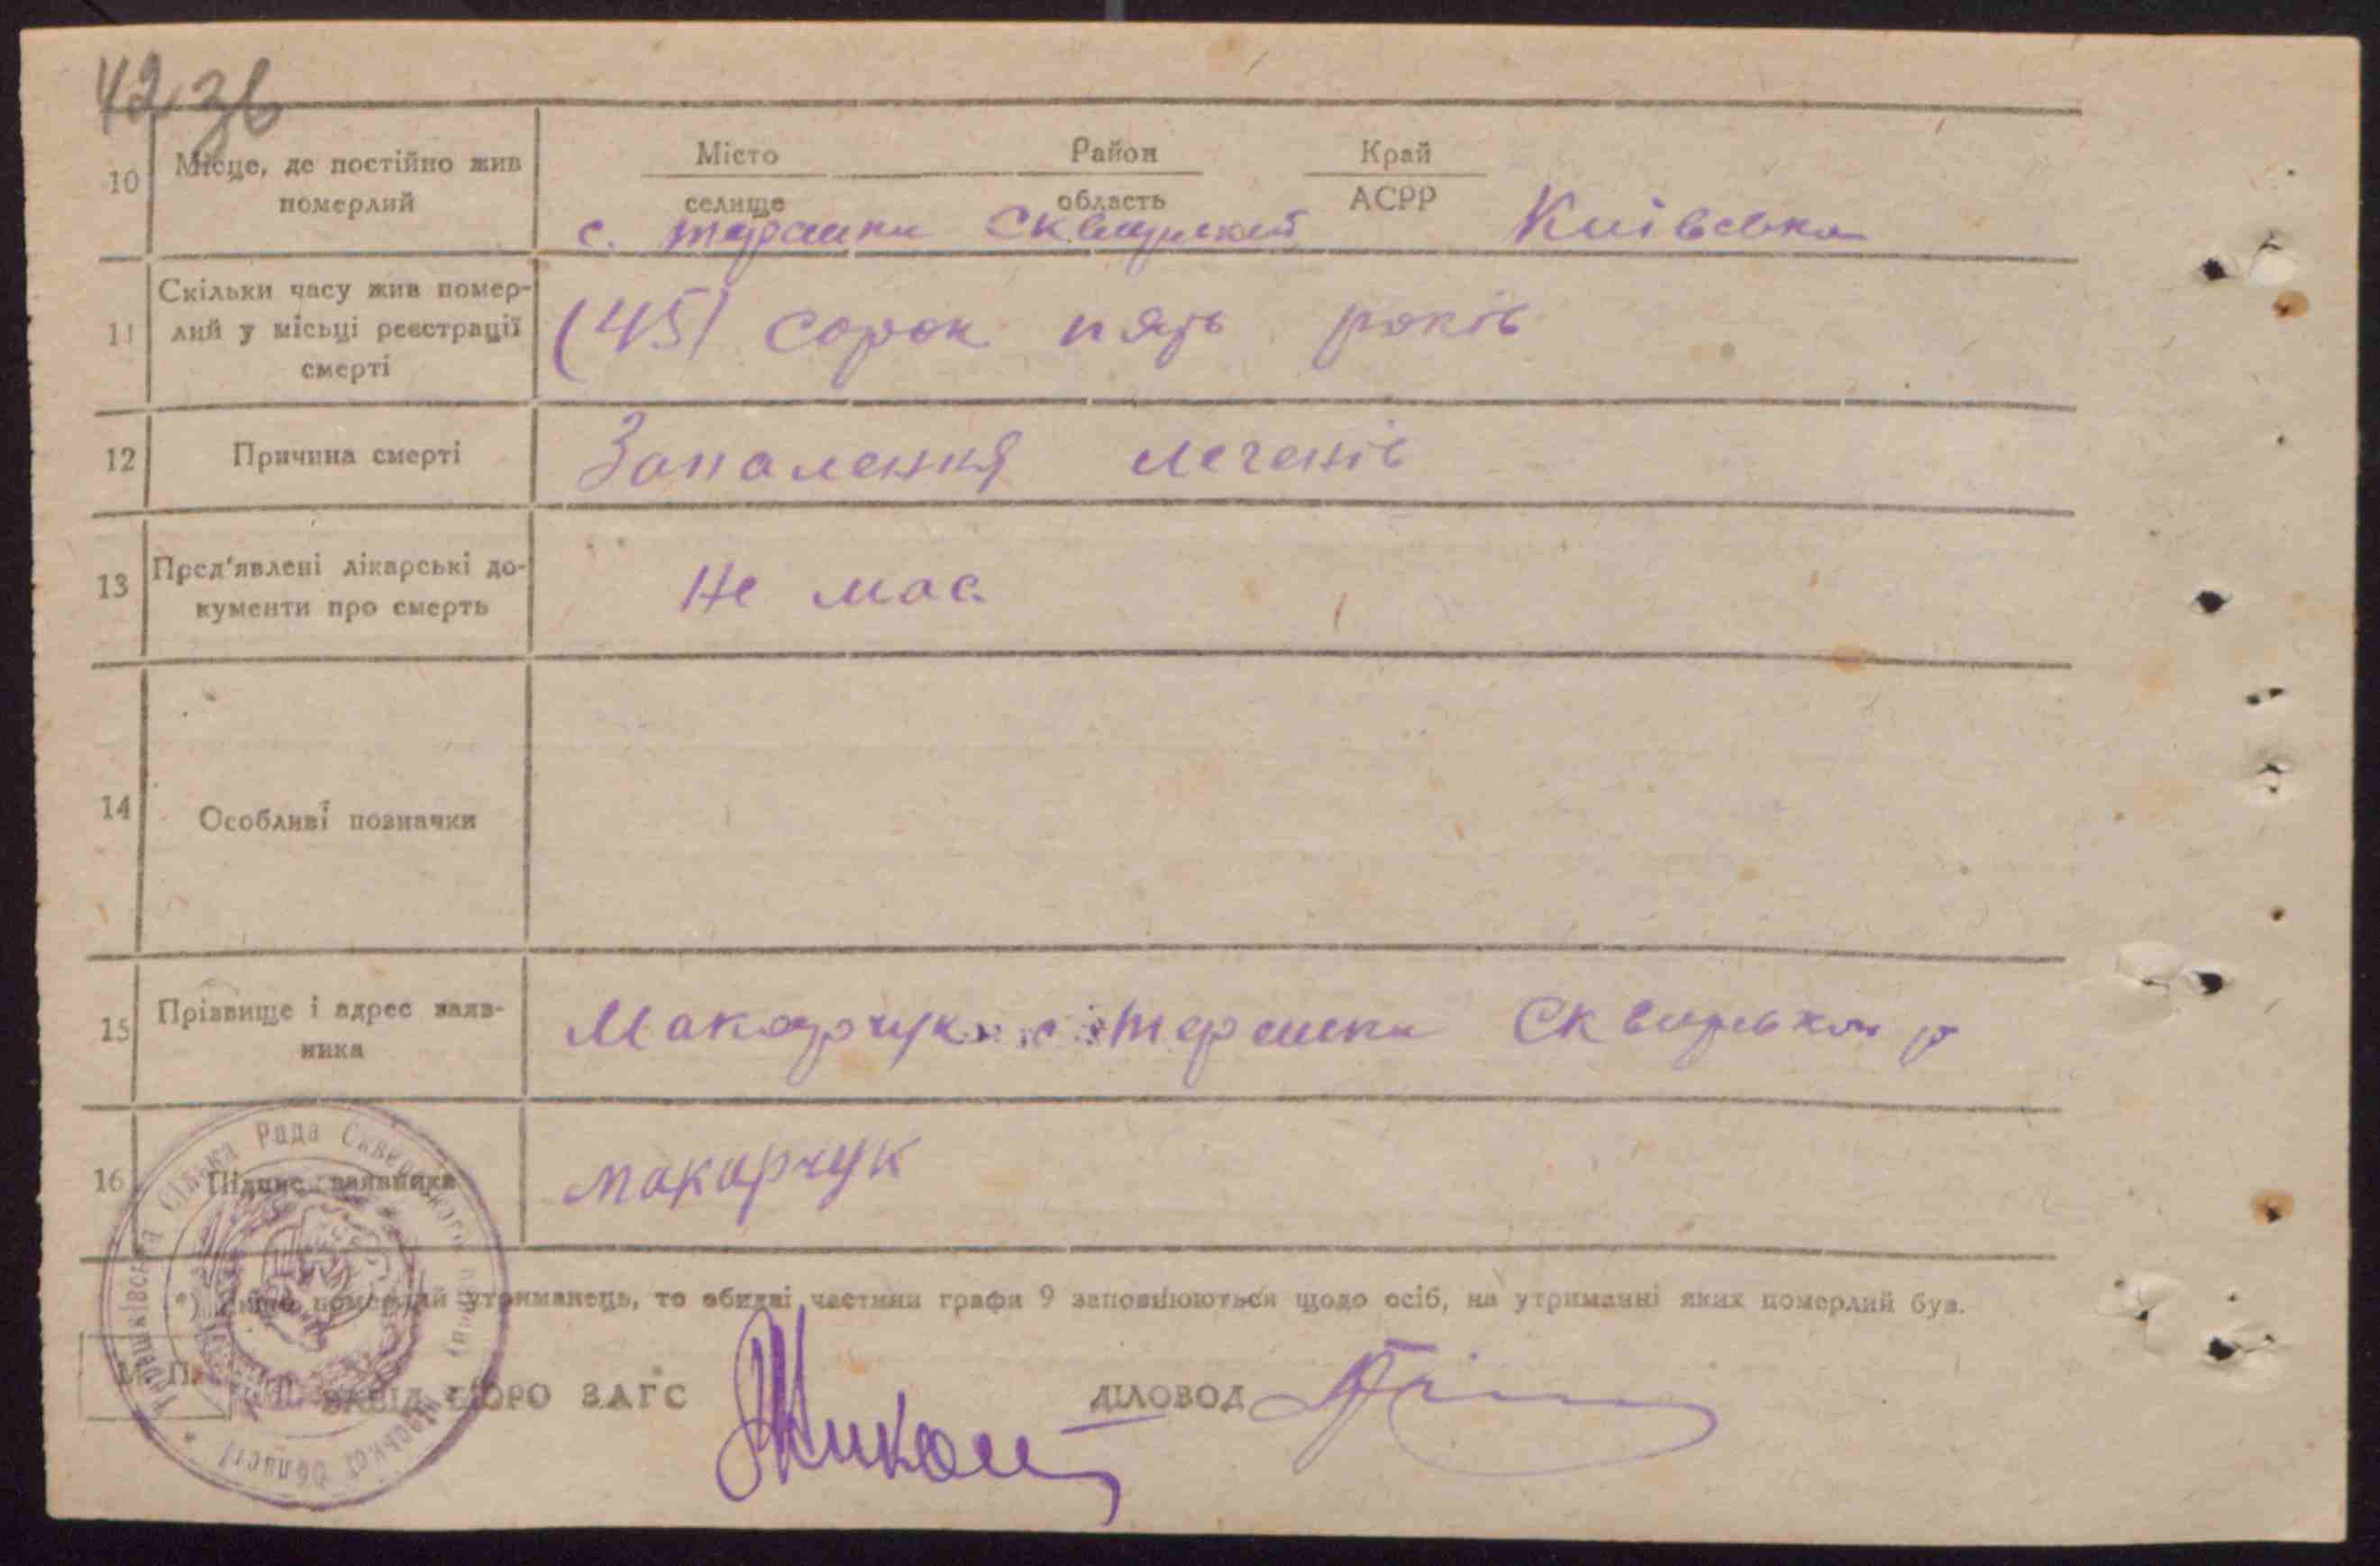 42 зв
10 Місце, де постійно жив померлий
Місто Район Край
селище область АСРР
с. Терешки Сквирський Київська
11 Скільки часу жив помер-
лий у місьці реєстрації
смерті
(45) сорок пять років
12 Причина смерті Запалення легенів
13 Пред'явлені лікарські до-
кументи про смерть
Не має
14 Особливі позначки
15 Прізвище і адрес заяв-
ника
Макарчук с. Терешки Сквирьком р
16 Підпис заявника макарчук
*) Якщо померлий утриманець, то обидві частини графи 9 заповнюються щодо осіб, на утриманні яких померлий був.
М. П. ЗАВІД. БЮРО ЗАГС ДІЛОВОД
Терешківська Сільська Рада Сквирського Району Київської Області